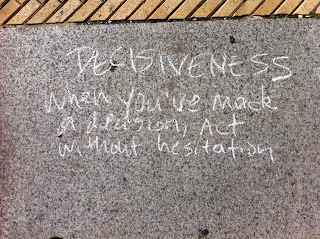 DECISIVENESS
When you've made
a decision, Act
without hesitation